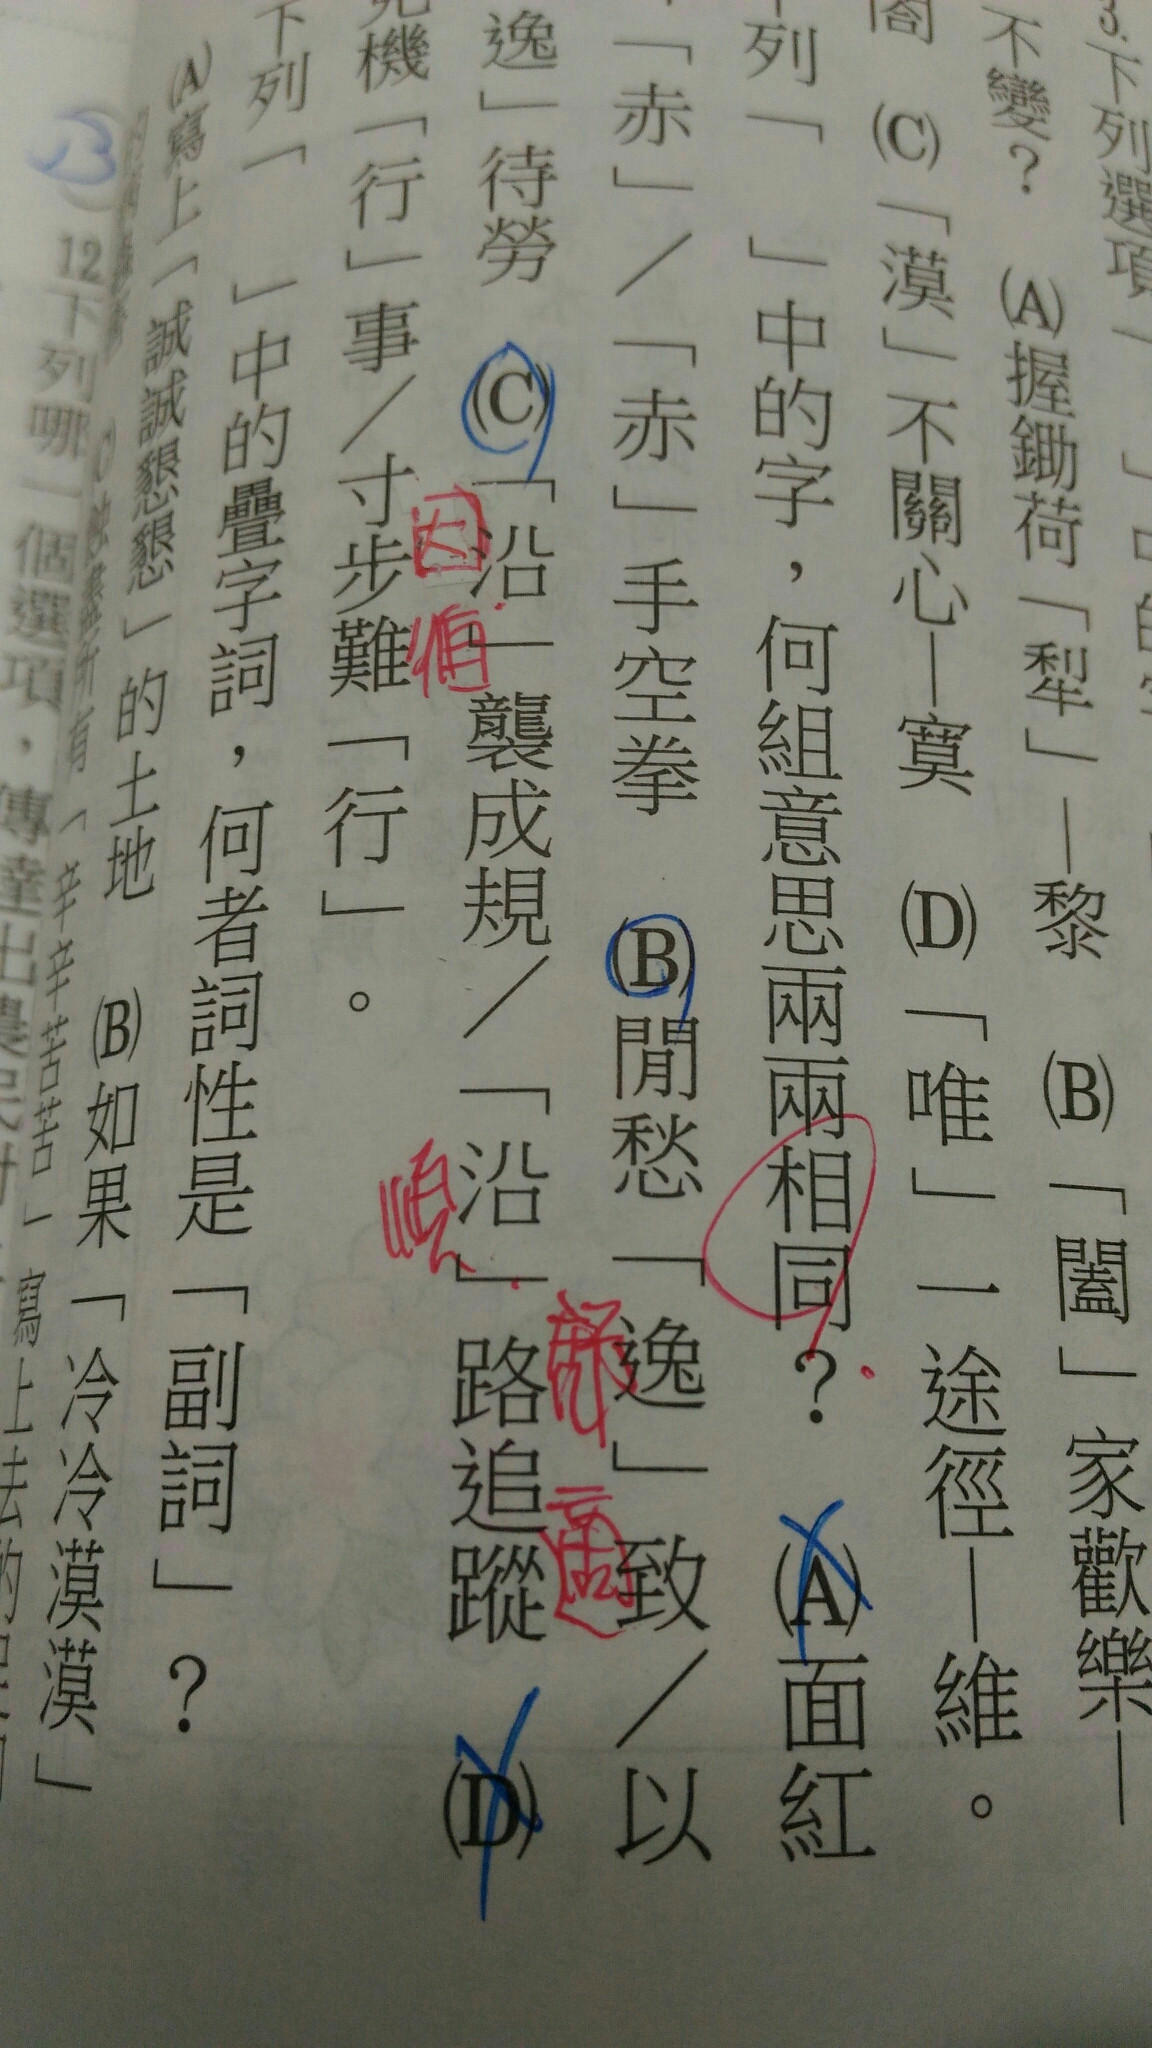 3.下列選項「 」中的
不變？ (A)握鋤荷「犁」—黎 (B)「闔」家歡樂—
閤 (C)「漠」不關心—寞 (D)「唯」一途徑—維。
下列「 」中的字，何組意思兩兩相同？ (A)面紅
「赤」／「赤」手空拳 (B)閒愁「逸」致／以
舒
適
逸」待勞 (C)「沿」襲成規／「沿」路追蹤 (D)
因
循
順
見機「行」事／寸步難「行」。
下列「 」中的疊字詞，何者詞性是「副詞」？
(A)寫上「誠誠懇懇」的土地 (B)如果「冷冷漠漠」
所有「辛辛苦苦」寫上去的
B
12下列哪一個選項，傳達出農民對